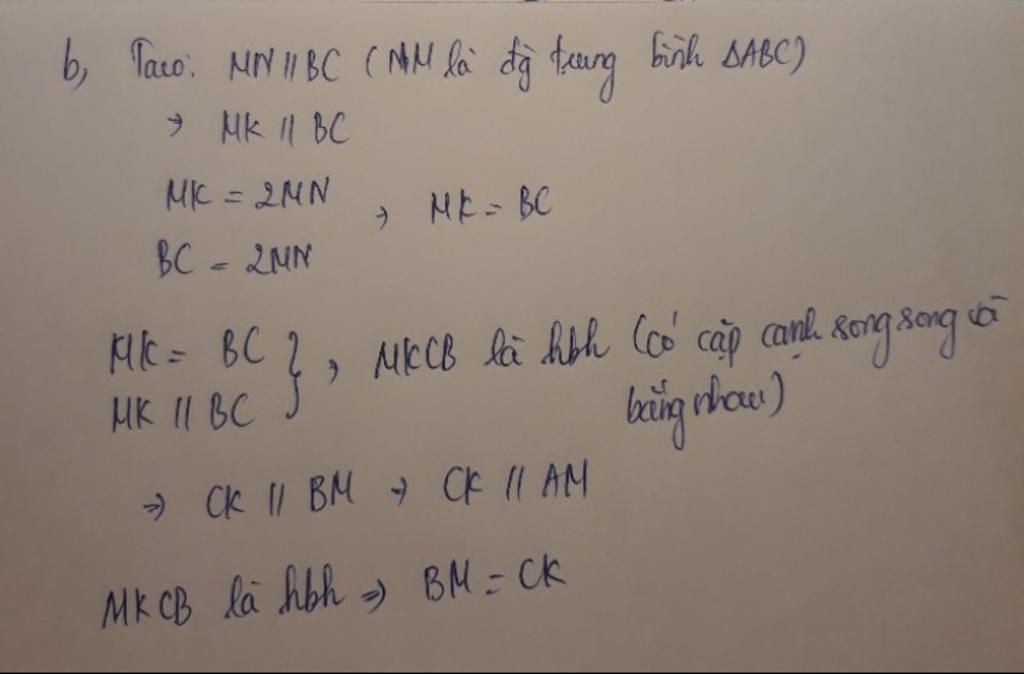 b, Taco: MN // BC ( NM là đg trung bình ΔABC)
→ MK // BC
MK = 2MN
→ MK = BC
BC = 2MN
MK = BC
MK // BC } → MKCB là hbh (có cặp cạnh song song và
bằng nhau)
⇒ CK // BM → CK // AM
MKCB là hbh ⇒ BM = CK